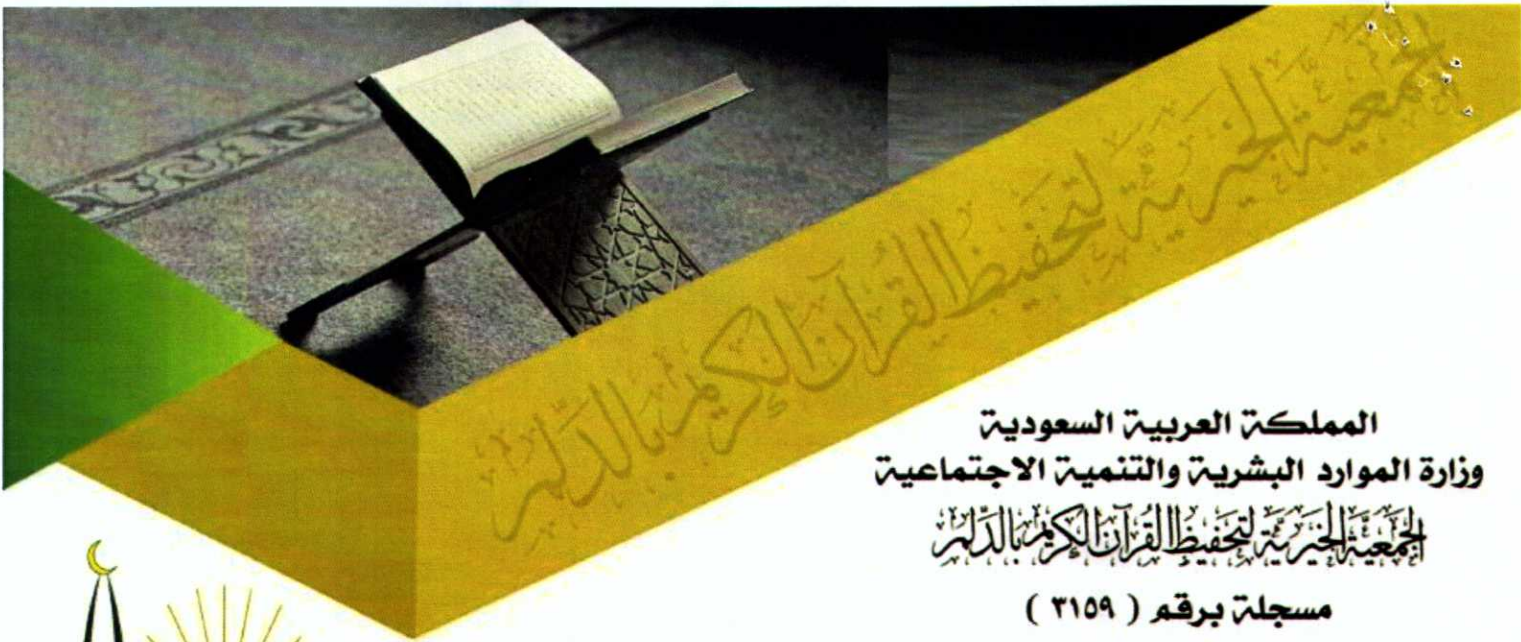 الجمعية الخيرية لتحفيظ القرآن الكريم بالدلم
المملكة العربية السعودية
وزارة الموارد البشرية والتنمية الاجتماعية
الجمعية الخيرية لتحفيظ القرآن الكريم بالدلم
مسجلة برقم ( ٣١٥٩ )